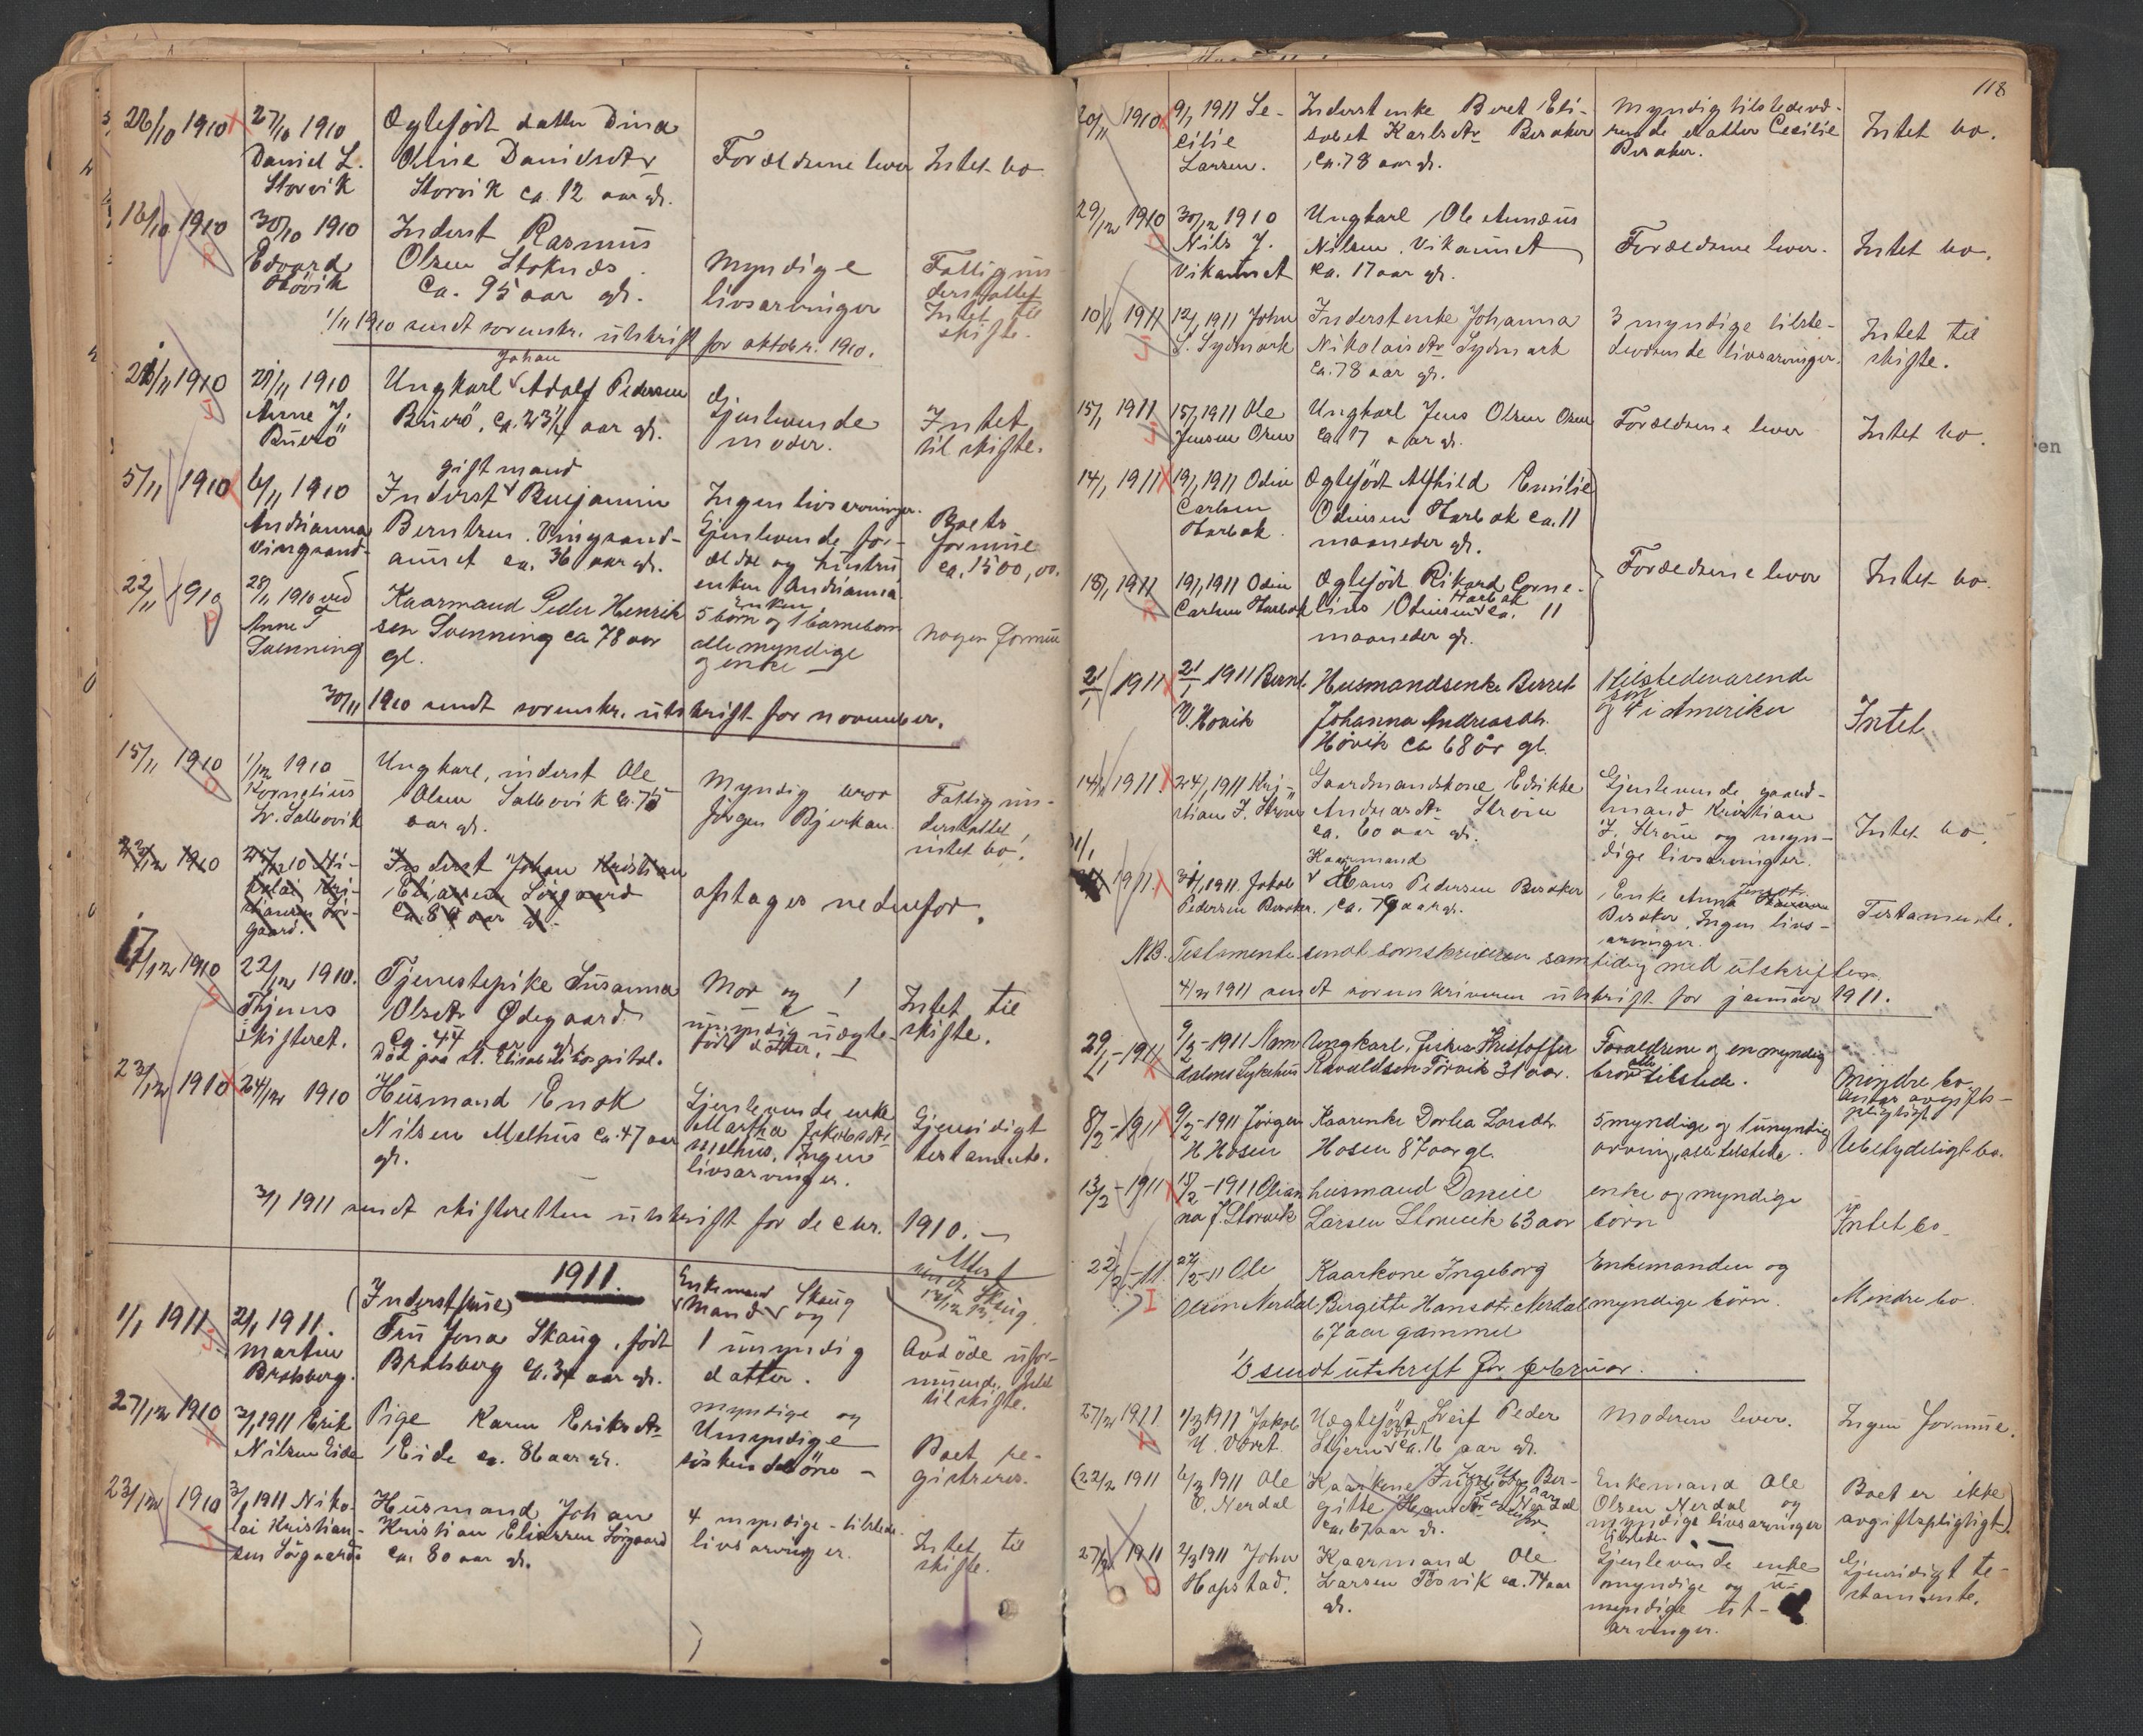 26/10 1910
27/10 1910
Daniel L.
Storvik
Ægtefødt datter Dina
Oline Danielsdtr
Storvik ca. 12 aar gl.
Forældrene lever
Intet bo
16/10 1910
30/10 1910
Edvard
Høvik
Inderst Rasmus
Olsen Stoknes
ca. 95 aar gl.
Myndige
livsarvinger
Fattigun-
derstøttet
Intet til
skifte.
1/11 1910 sendt sorenskr. utskrift for oktobr. 1910.
21/11 1910
Anne J.
Buerö
Johan
Ungkarl Adolf Pedersen
Buerö, ca. 23 1/4 aar gl.
Gjenlevende
moder.
Intet
til skifte.
5/11 1910
6/11 1910
Andrianna
Vingsand
gift mand
Inderst Benjamin
Berntsen Vingsand-
aunet ca. 36 aar gl.
Ingen livsarvinger.
Gjenlevende for-
ældre og hustru
enken Andrianna
Boets
formue
ca. 1500,00.
22/11 1910
28/11 1910 ved
Anne T
Svenning
Kaarmand Peder Henrik
sen Svenning ca 78 aar
gl.
Enken
5 børn og 1 barnebarn
alle myndige
og enke
Nogen formue
30/11 1910 sendt sorenskr. utskrift for november.
15/11 1910
1/12 1910
Kornelius
Sallovik
Ungkarl, inderst Ole
Olsen Sallovik ca. 75
aar gl.
Myndig bror
Jørgen Bjerkan
Fattigun-
derstøttet
intet bo.
23/12 1910
Inderst Johan Kristian
Eliassen Sörgaard
ca. 80 aar gl.
optages nedenfor.
17/12 1910
22/12 1910.
Thjems
skifteret.
Tjenestepike Susanna
Olsdtr Ødegaard
ca. 44 aar gl.
Död paa St. Elisabeth hospital.
Mor og 1
umyndig uægte-
født datter.
Intet til
skifte.
23/12 1910
24/12 1910
Husmand Enok
Nilsen Melhus ca. 47 aar
gl.
Gjenlevende enke
Martha Jakobsdtr
Melhus. Ingen
livsarvinger.
Gjensidigt
testamente.
3/1 1911 sendt skifteretten utskrift for decbr. 1910.
1911.
1/1 1911
2/1 1911.
Martin
Bratsberg.
(Inderst
Fru Jona Skaug, født
Bratsberg ca. 34 aar gl.
Enkemand Skaug
og
1 umyndig
datter.
Avdöde ufor-
muende. Intet
til skifte.
27/12 1910
3/1 1911 Erik
Nilsen Eide
Pige Karen Eriksdtr
Eide ca. 86 aar gl.
Myndige og
Umyndige
søskendebörn
Boet re-
gistreres.
23/12 1910
3/1 1911 Niko-
lai Kristian-
sen Sörgaard
Husmand Johan
Kristian Eliassen Sörgaard
ca. 80 aar gl.
4 myndige tilstede
livsarvinger.
Intet til
skifte.
118
20/11 1910
9/1 1911 Se-
cilie
Larsen.
Inderst enke Beret Eli-
sabet Karlsdtr Besaker
ca. 78 aar gl.
Myndig tilstedevæ-
rende datter Cecilie
Besaker.
Intet bo.
29/12 1910
30/12 1910
Nils J.
Vikaunet
Ungkarl Ole Annæus
Nilsen Vikaunet
ca. 17 aar gl.
Forældrene lever.
Intet bo.
10/1 1911
12/1 1911 John
S. Sydmark
Inderstenke Johanna
Nikolaisdtr Sydmark
ca. 78 aar gl.
3 myndige tilste-
deværende livsarvinger.
Intet til
skifte.
15/1 1911
15/1 1911 Ole
Jensen Osen
Ungkarl Jens Olsen Osen
ca. 17 aar gl.
Forældrene lever
Intet bo.
14/1 1911
19/1 1911 Odin
Carlsen
Harbak
Ægtefödt Alfhild Emilie
Odinsen Harbak ca. 11
maaneder gl.
18/1 1911
19/1 1911 Odin
Carlsen Harbak
Ægtefödt Rikard Corne-
lius Odinsen Harbak ca. 11
maaneder gl.
Forældrene lever
Intet bo.
21/1 1911
21/1 1911 Bernt
V. Hovik
Husmandsenke Berret
Johanna Andreasdtr.
Hövik ca 68 år gl.
1 tilstedeværende
søn
og 4 i Amerika
Intet
14/1 1911
24/1 1911 Kri-
stian J. Ström
Gaardmandskone Edikke
Andreasdtr Ström
ca. 60 aar gl.
Gjenlevende gaard-
mand Kristian
J. Ström og myn-
dige livsarvinger.
Intet bo.
31/1
1911
31/1 1911. Jakob
Pedersen Besaker.
Kaarmand
Hans Pedersen Besaker
ca. 79 aar gl.
Enke Anna Jensdt.
Besaker. Ingen livs-
arvinger.
Testamente.
NB. Testamente sendt sorenskriveren samtidig med utskriften.
4/2 1911 sendt sorenskriveren utskrift for januar 1911.
29/1-1911
9/2-1911 Nam
dalens Sykehus
Ungkarl, fisker Kristoffer
Ravaldsen Törvik 31 aar.
Forældrene og en myndig
bror alle tilstede.
Mindre bo
avgifts-
pligtigt
8/2-1911
9/2-1911 Jørgen
H Hosen
Kaarenke Dorthea Larsdtr.
Hosen 87 aar gl.
5 myndige og 1 umyndig
arving, alle tilstede.
Ubetydeligt bo.
13/2-1911
15/2-1911 Olian
na J. Storvik
husmand Daniel
Larsen Storvik 63 aar
enke og myndige
børn
Intet bo
22/2-11.
27/2-11 Ole
Olsen Nerdal
Kaarkone Ingeborg
Birgitte Hansdtr. Nerdal
67 aar gammel
Enkemanden og
myndige børn.
Mindre bo
1/3 sendt utskrift for februar.
27/2 1911
1/3 1911 Jakob
U. Været.
Uægtefödt Leif Peder
Stjern ca. 16 aar gl.
Været
Moderen lever.
Ingen formue.
(22/2 1911
6/3 1911 Ole
O. Nerdal
Kaarkone Ingeborg Ber-
gitte Hansdtr Nerdal
ca. 67 aar gl.
Enkemand Ole
Olsen Nerdal og
myndige livsarvinger
tilstede.
Boet er ikke
avgiftspligtigt)
27/2 1911
2/3 1911 John
Hopstad.
Kaarmand Ole
Larsen Tösvik ca. 74 aar
gl.
Gjenlevende enke
myndige og u-
myndige ut-
arvinger.
Gjensidigt te-
stamente.